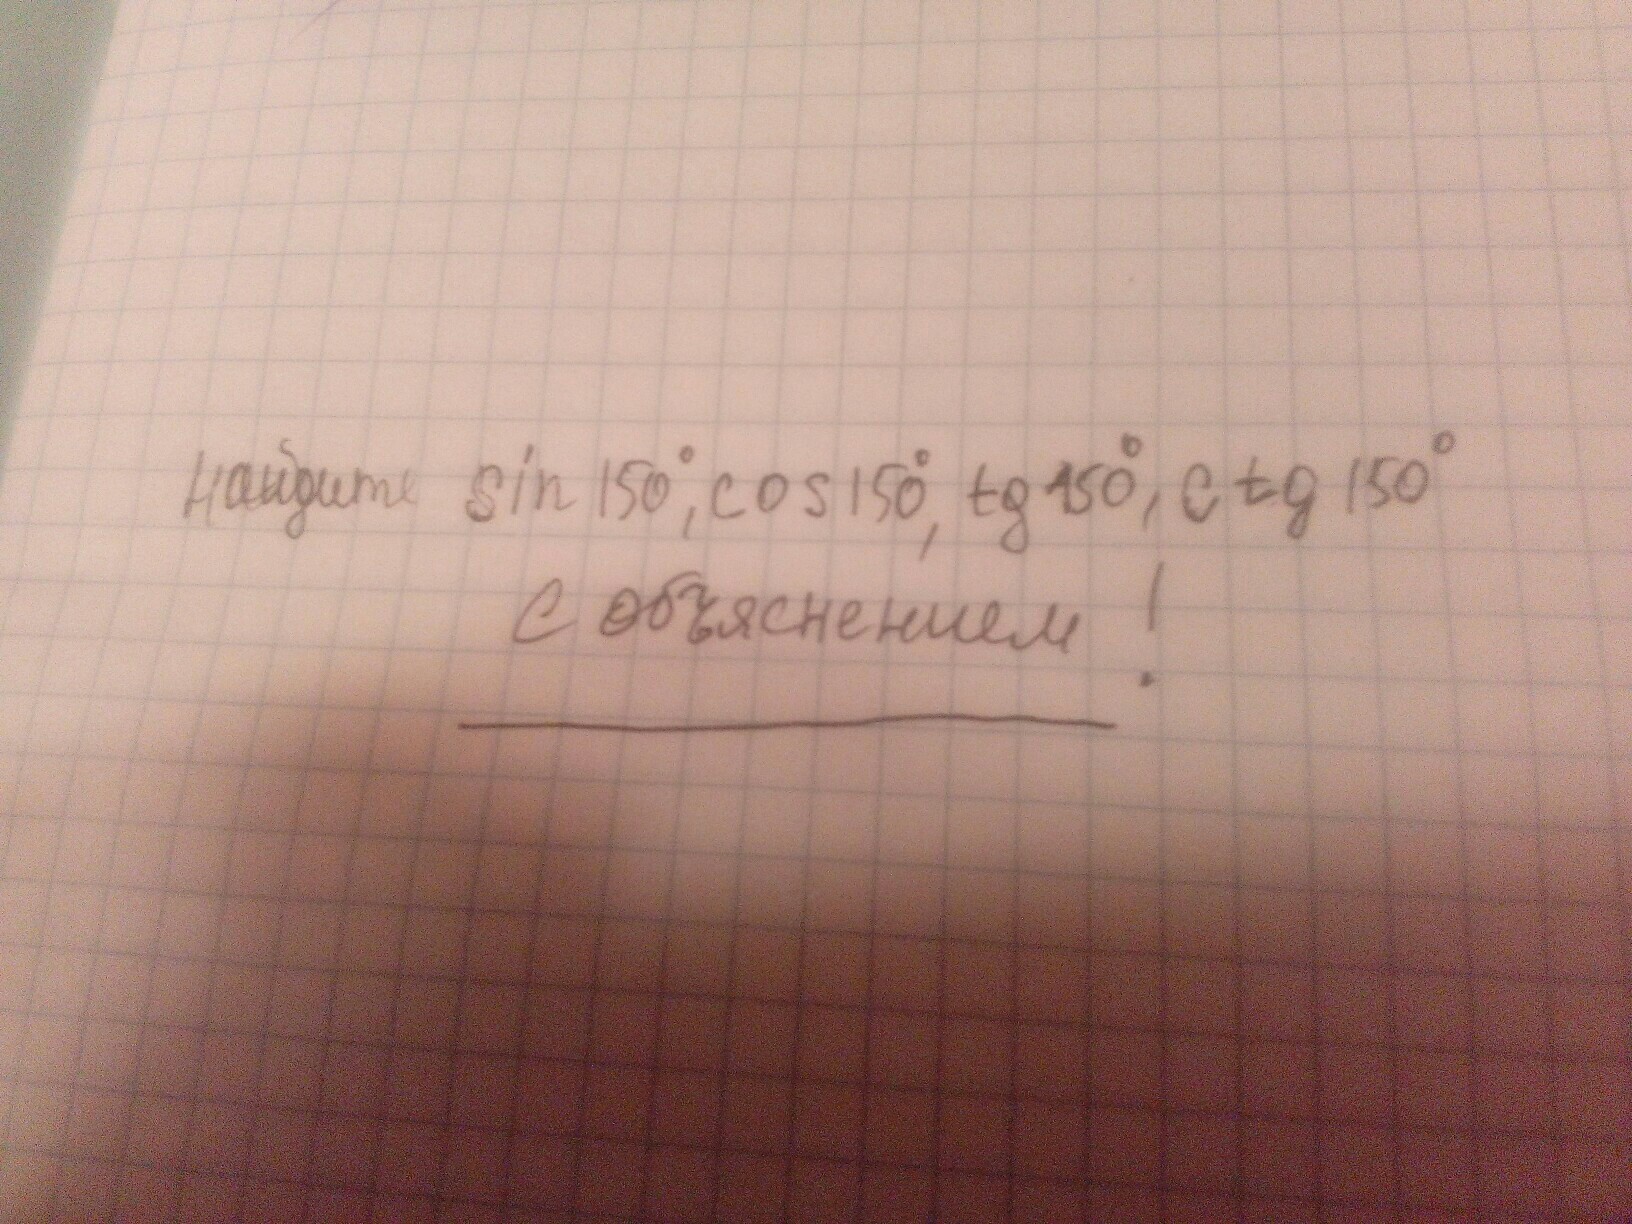 Найдите sin 150°, cos 150°, tg 150°, ctg 150°
С объяснением!